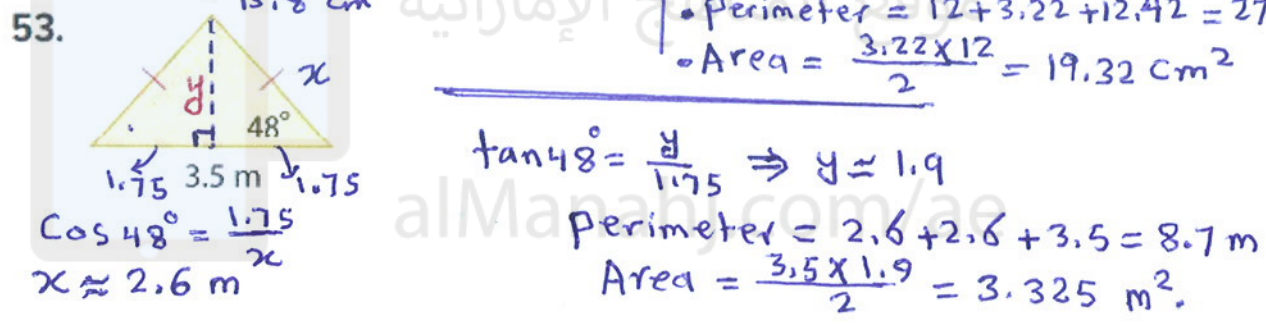 15.8 cm
• Perimeter = 12+3.22+12.42 = 27
• Area = 3.22×12 / 2 = 19.32 cm²
53.
x
y
48°
1.75 3.5 m 1.75
cos 48° = 1.75 / x
x ≈ 2.6 m
tan 48° = y / 1.75 ⇒ y ≃ 1.9
perimeter = 2.6 + 2.6 + 3.5 = 8.7 m
Area = 3.5 × 1.9 / 2 = 3.325 m².
موقع المناهج الإماراتية
alManahj.com/ae